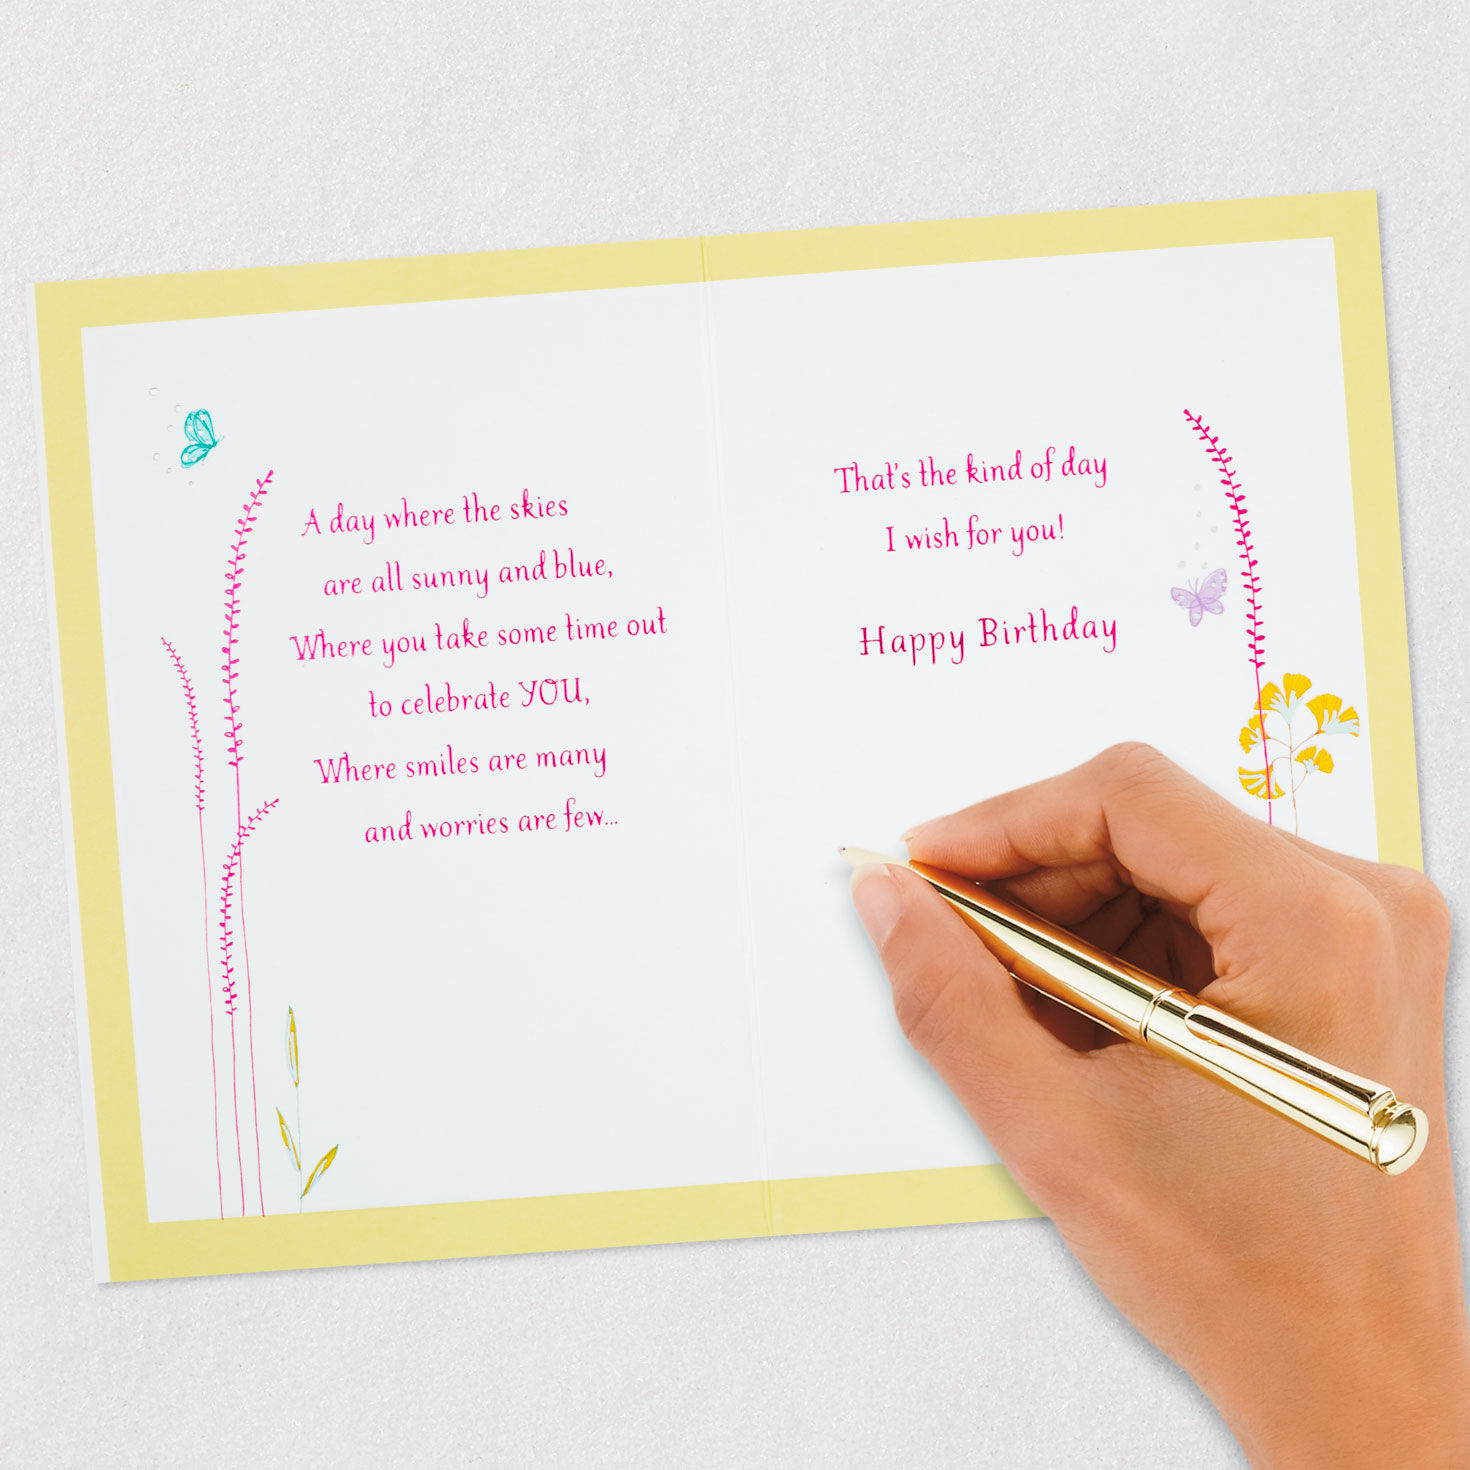 A day where the skies
are all sunny and blue,
Where you take some time out
to celebrate YOU,
Where smiles are many
and worries are few...
That's the kind of day
I wish for you!
Happy Birthday